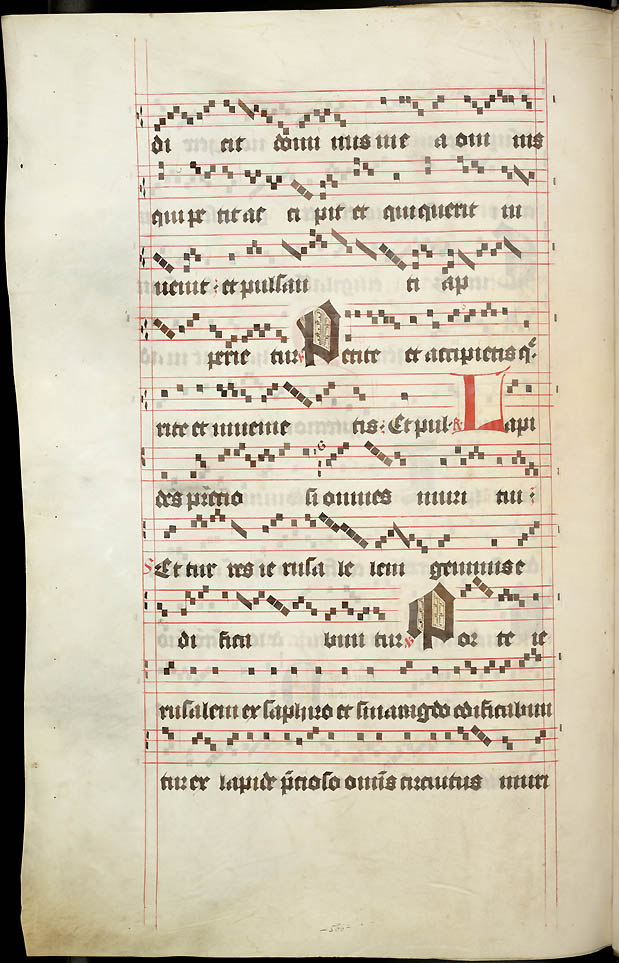 di cit domi nus me a omnis
qui pe tit ac ci pit et qui querit in
uenit : et pulsan ti ap
perie tur ℣ Petite et accipietis q̄
rite et inuenie tis : Et pul ℟ Lapi
des p̄cio si omnes muri tui :
℣ Et tur res ie rusa le lem gemmis e
di fica bun tur ℣ Por te ie
rusalem ex saphiro et smaragdo edificabun
tur ex lapide p̄cioso om̄s circuitus muri